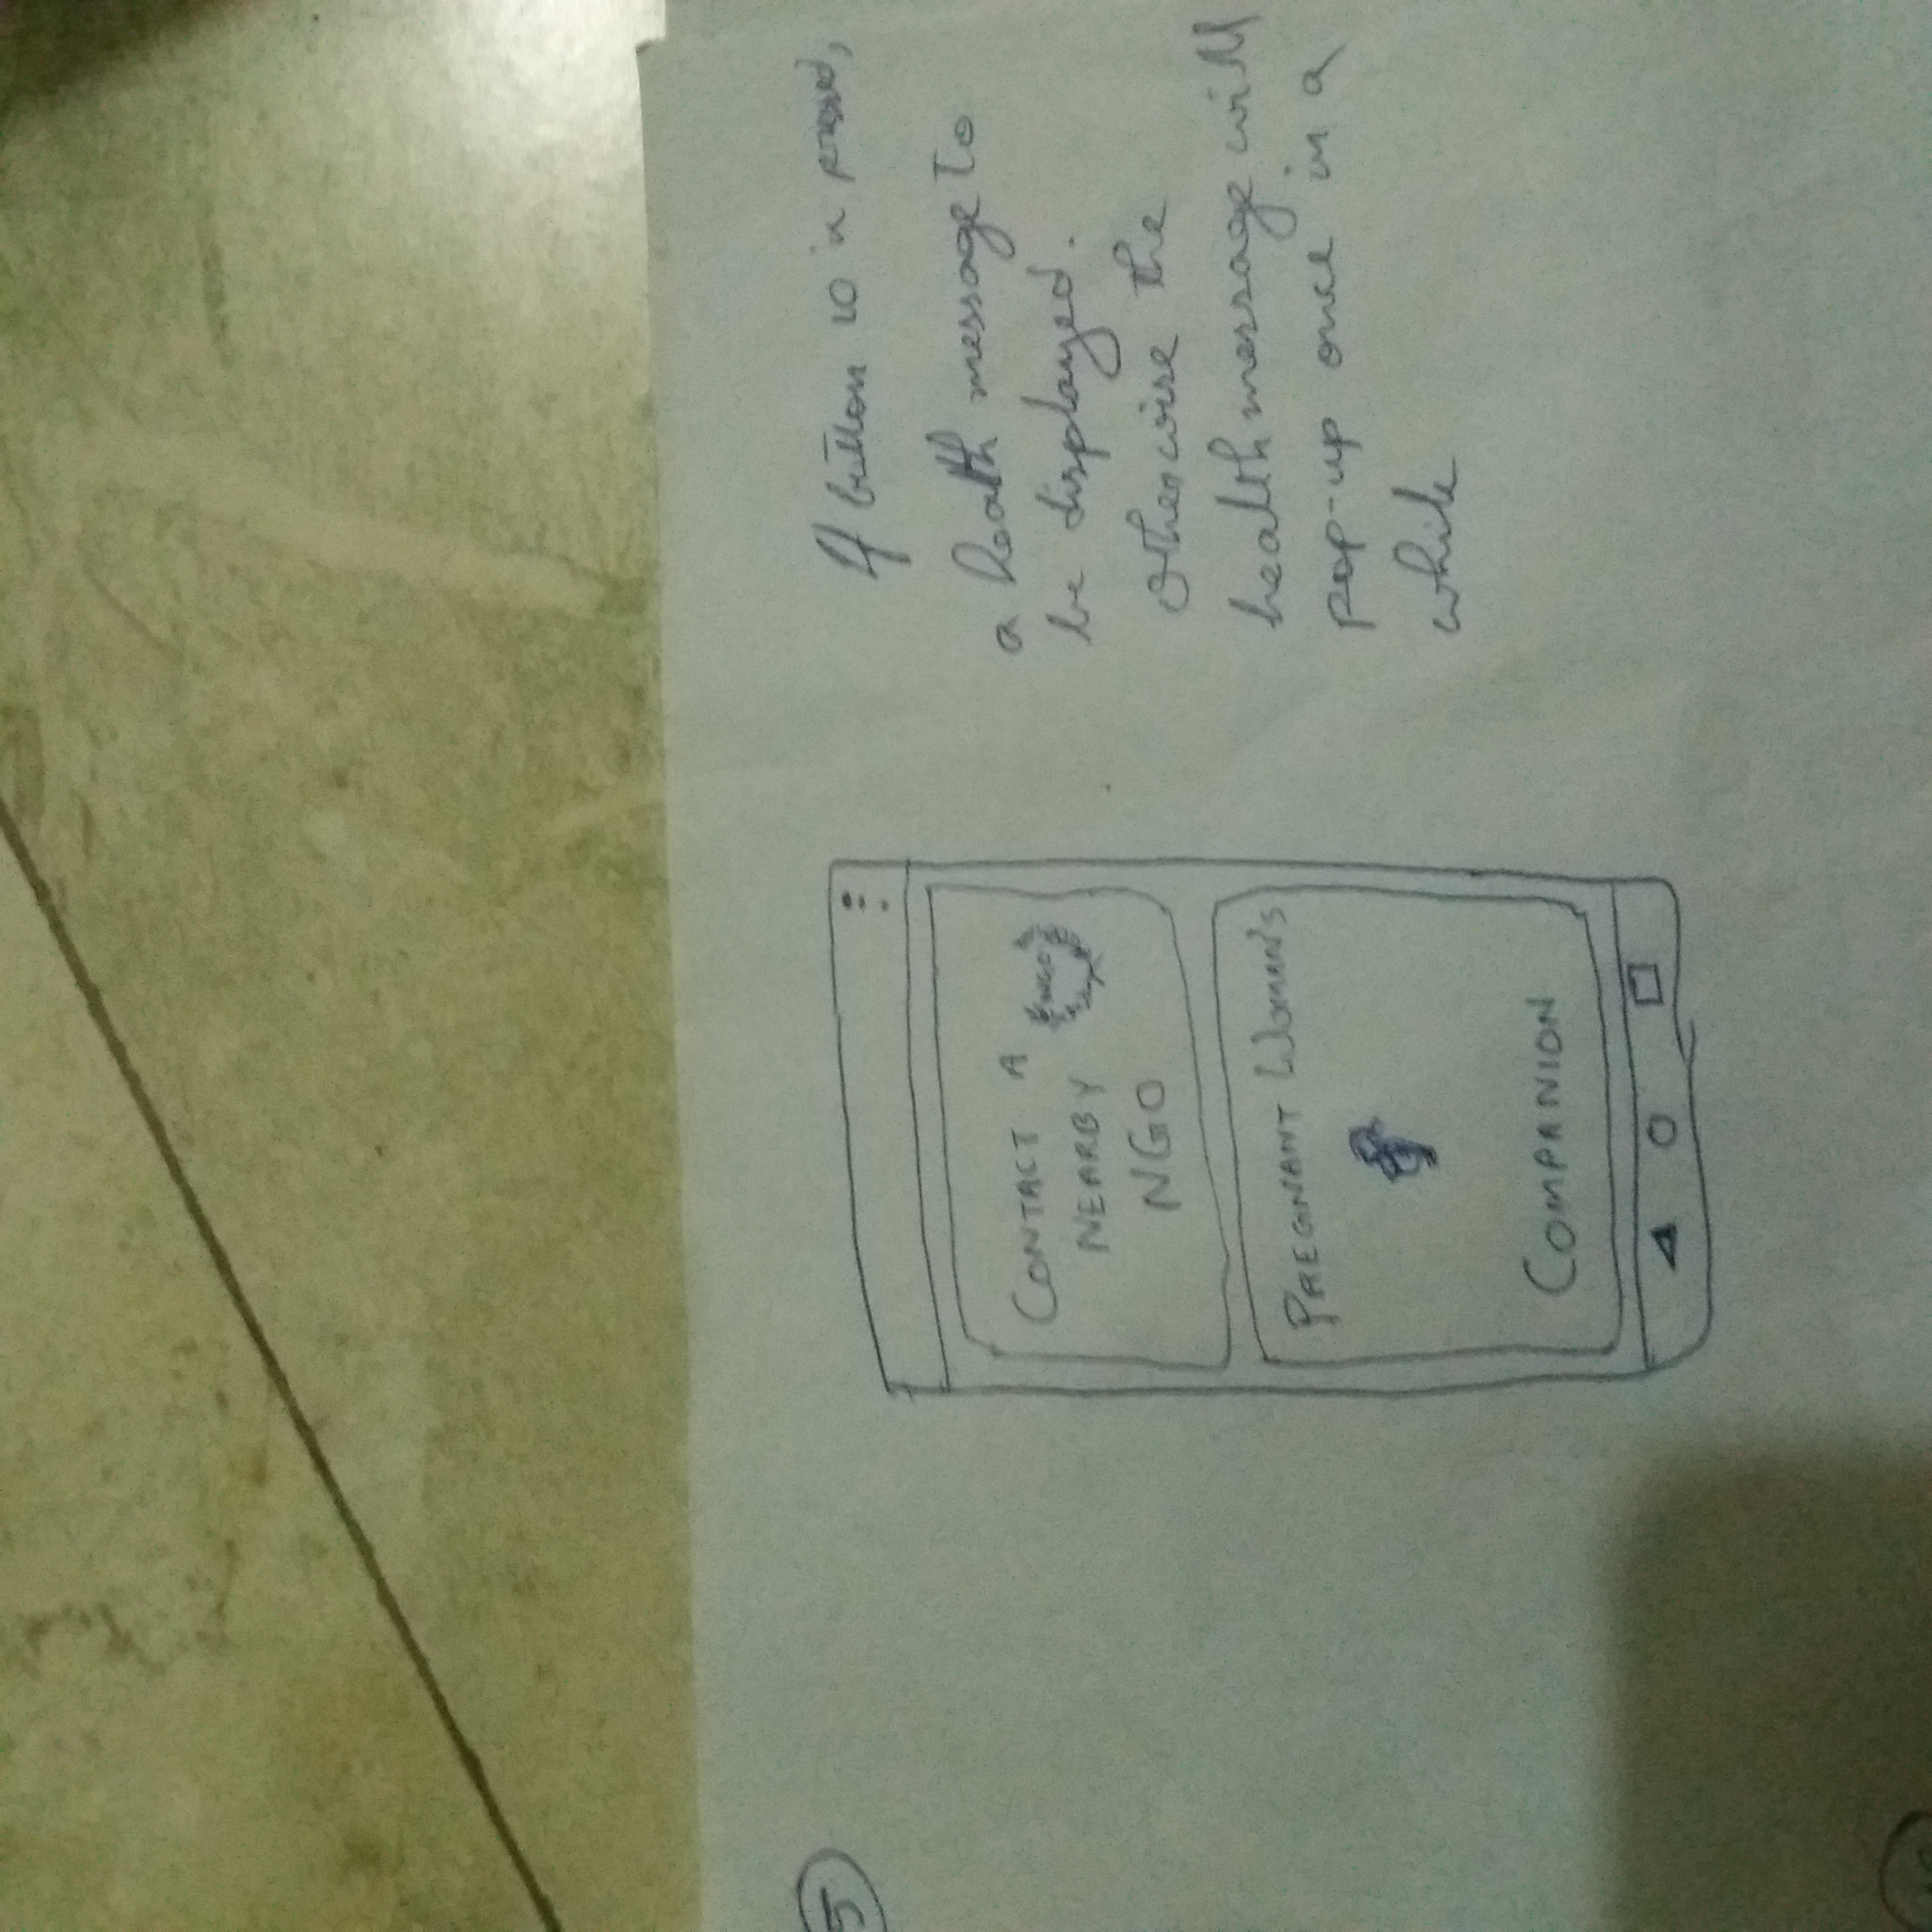 5
CONTACT A
NEARBY
NGO
PREGNANT WOMAN'S
COMPANION
If button 10 is pressed,
a heath message to
be displayed.
Otherwise the
health message will
pop-up once in a
while